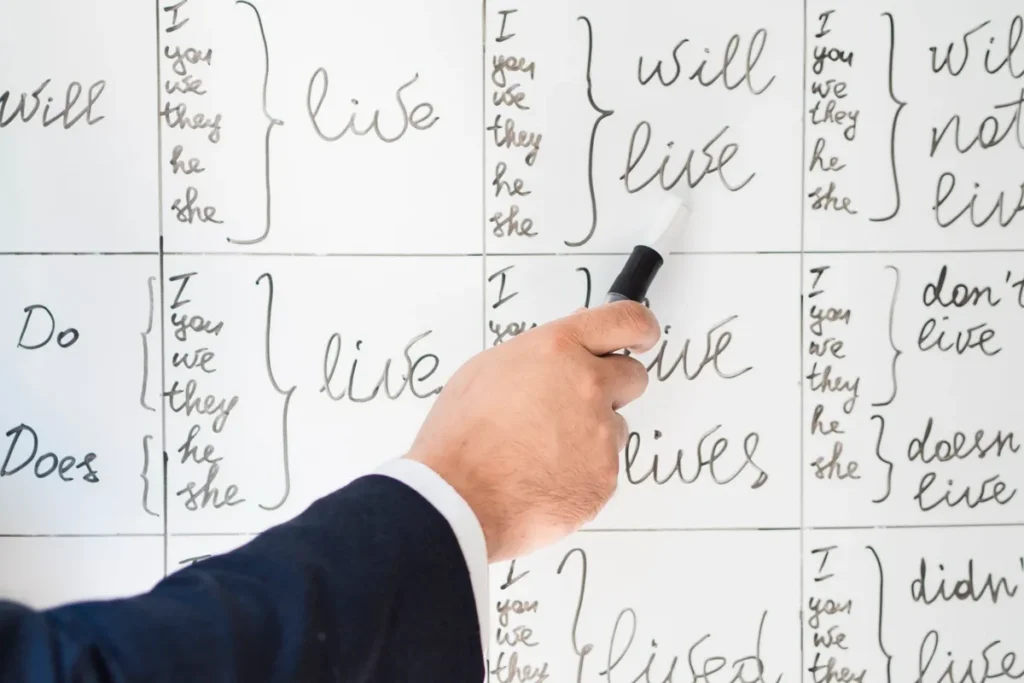 Will
I
you
we
they
he
she
live
I
you
we
they
he
she
will
live
I
you
we
they
he
she
wil
not
liv
Do
Does
I
you
we
they
he
she
live
I
you
ive
lives
I
you
we
they
he
she
don't
live
doesn
live
I
you
we
they
lived
I
you
we
they
didn'
live